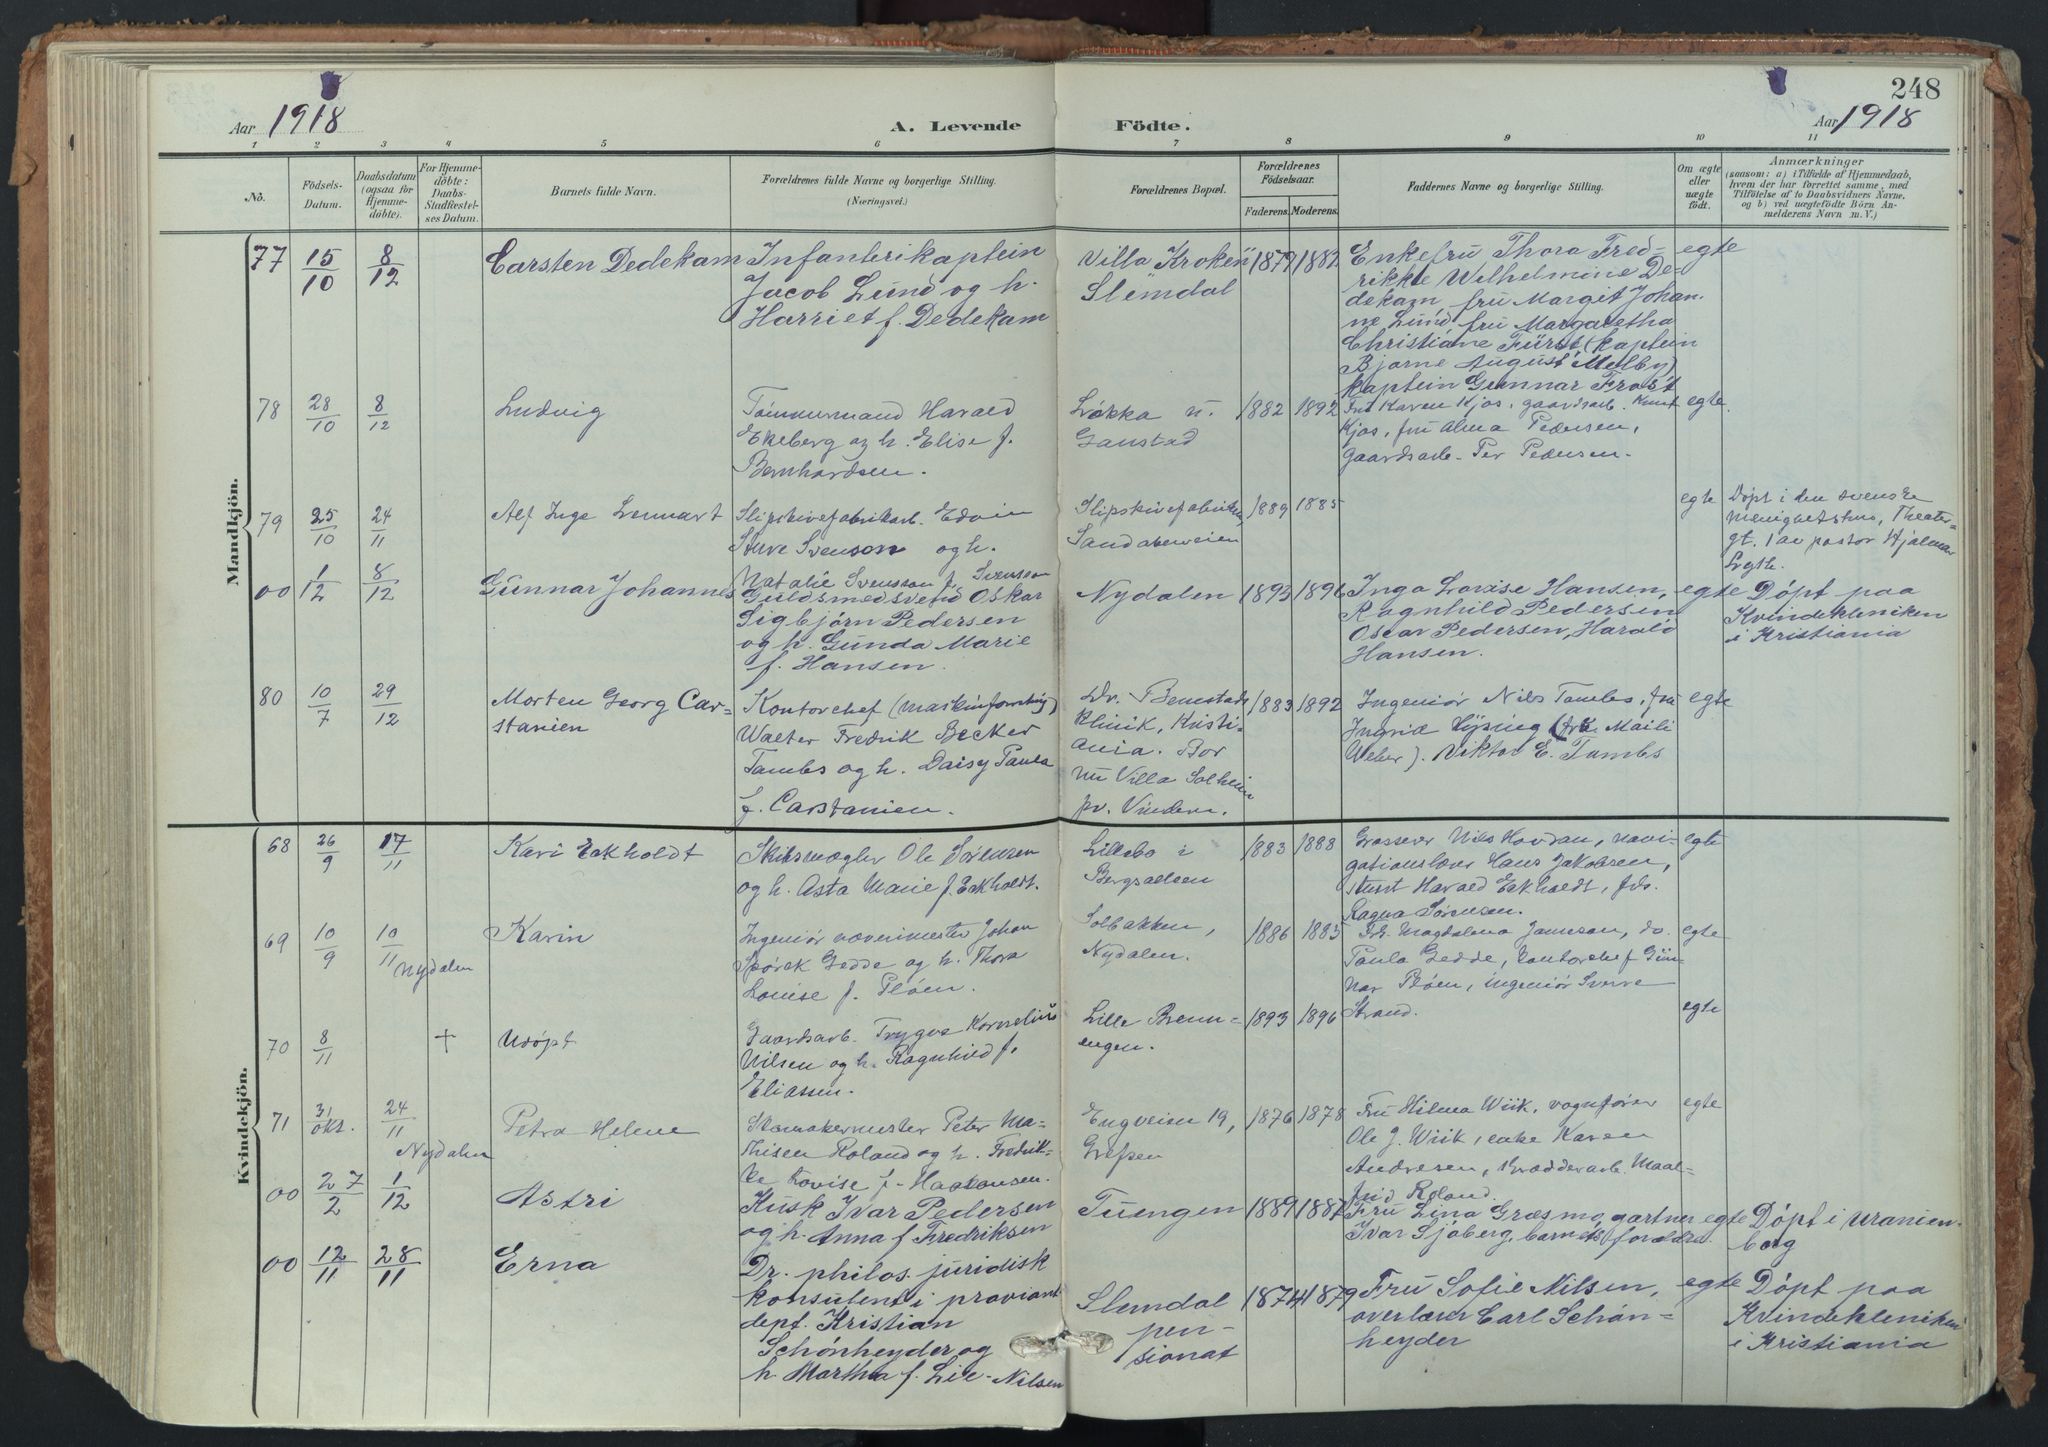 248
Aar 1918
A. Levende
Födte.
Aar 1918
1 2 3 4 5 6 7 8 9 10 11
No.
Födsels-
Datum.
Daabsdatum
(ogsaa for
Hjemme-
döbte).
For Hjemme-
döbte:
Daabs-
Stadfestel-
ses Datum.
Barnets fulde Navn.
Forældrenes fulde Navne og borgerlige Stilling.
(Næringsvei.)
Forældrenes Bopæl.
Forældrenes
Födselsaar.
Faderens.
Moderens.
Faddernes Navne og borgerlige Stilling.
Om ægte
eller
uægte
födt.
Anmærkninger
(saasom: a) i Tilfælde af Hjemmedaab,
hvem der har forrettet samme, med
Tilföielse af to Daabsvidners Navne,
og b) ved uægtefödte Börn An-
melderens Navn m. V.)
Mandkjön.
77 15/10 8/12
Carsten Dedekam
Infanterikaptein
Jacob Lund og h.
Harriet f. Dedekam
Villa "Kroken"
Slemdal
1879 1882
Enkefru Thora Fred-
rikke Wilhelmine De-
dekam fru Margit Johan-
ne Lund fru Margaretha
Christiane Fürst (kaptein
Bjarne August Melby)
kaptein Gunnar Frost
egte
78 28/10 8/12
Ludvig
Tømmermand Harald
Ekeberg og h. Elise f.
Bernhardsen.
Løkka u.
Gaustad
1882 1892
Fru Karen Kjos, gaardsarb. Knut
Kjos, fru Alma Pedersen,
gaardsarb. Per Pedersen.
egte.
79 25/10 24/11
Alf Inge Lennart
Slipskivefabrikarb. Edvin
Sture Svenson og h.
Natalie Svensson f. Svensson
Slipskivefabriken,
Sandakerveien
1889 1885
egte
Døpt i den svenske
menighetshus, Theater-
gt. 1 av pastor Hjalmar
00 1/12 8/12
Gunnar Johannes
Guldsmedsvend Oskar
Sigbjørn Pedersen
og h. Gunda Marie
f. Hansen.
Nydalen
1893 1896
Inga Lovise Hansen,
Ragnhild Pedersen
Oscar Pedersen, Harald
Hansen.
egte
Døpt paa
Kvindekliniken
i Kristiania
80 10/7 29/12
Morten Georg Car-
stanien
Kontorchef (maskinforretning)
Walter Fredrik Becker
Tambs og h. Daisy Paula
f. Carstanien.
Dr.
klinik, Kristi-
ania. Bor
nu Villa Solheim
pr. Vinderen.
1883 1892
Ingeniør Nils Tambs, fru
Ingrid (frk. Maili
Weber). Viktor E. Tambs
egte
Kvindekjön.
68 26/9 17/11
Kari Eckholdt
Skibsmægler Ole Sørensen
og h. Asta Marie f. Eckholdt.
Lillebo i
Bergsalleen
1883 1888
Grosserer Nils Hovdan, navi-
gationslærer Hans Jakobsen,
stud Harald Eckholdt, frk.
Ragna Sørensen.
egte
69 10/9 10/11
Nydalen
Karin
Ingeniør væverimester Johan
Spørck Gedde og h. Thora
Louise f. Pløen.
Solbakken,
Nydalen.
1886 1885
Frk. Magdalena Jameson, do.
Paula Gedde, kontorchef Gun-
nar Pløen, ingeniør Sverre
Strand.
egte
70 8/11 +
Udøpt
Gaardsarb. Trygve Kornelius
Nilsen og h. Ragnhild f.
Eliassen.
Lille Brenn-
engen.
1893 1896
egte
71 31/okt. 24/11
Nydalen
Petra Helene
Skomakermester Peter Ma-
thisen Roland og h. Fredrik-
ke Lovise f. Haakonsen.
Engveien 19,
Grefsen
1876 1878
Fru Hilma Wiik, vognfører
Ole J. Wiik, enke Karen
Andresen, skrædderarb. Maal-
frid Roland.
egte
00 27/2 1/12
Astri
Kusk Ivar Pedersen
og h. Anna f. Fredriksen
Tuengen
1889 1887
Fru Lina Græsmo, gartner
Ivar Sjøberg, barnets forældre.
egte
Døpt i Uranien-
borg
00 12/11 28/11
Erna
Dr. philos. juridisk
konsulent i proviant
dept. Kristian
Schønheyder og
h. Martha f. Lie-Nilsen
Slemdal
pen-
sionat
1874 1879
Fru Sofie Nilsen,
overlærer Carl Schøn-
heyder
egte
Døpt paa
Kvindekliniken
i Kristiania